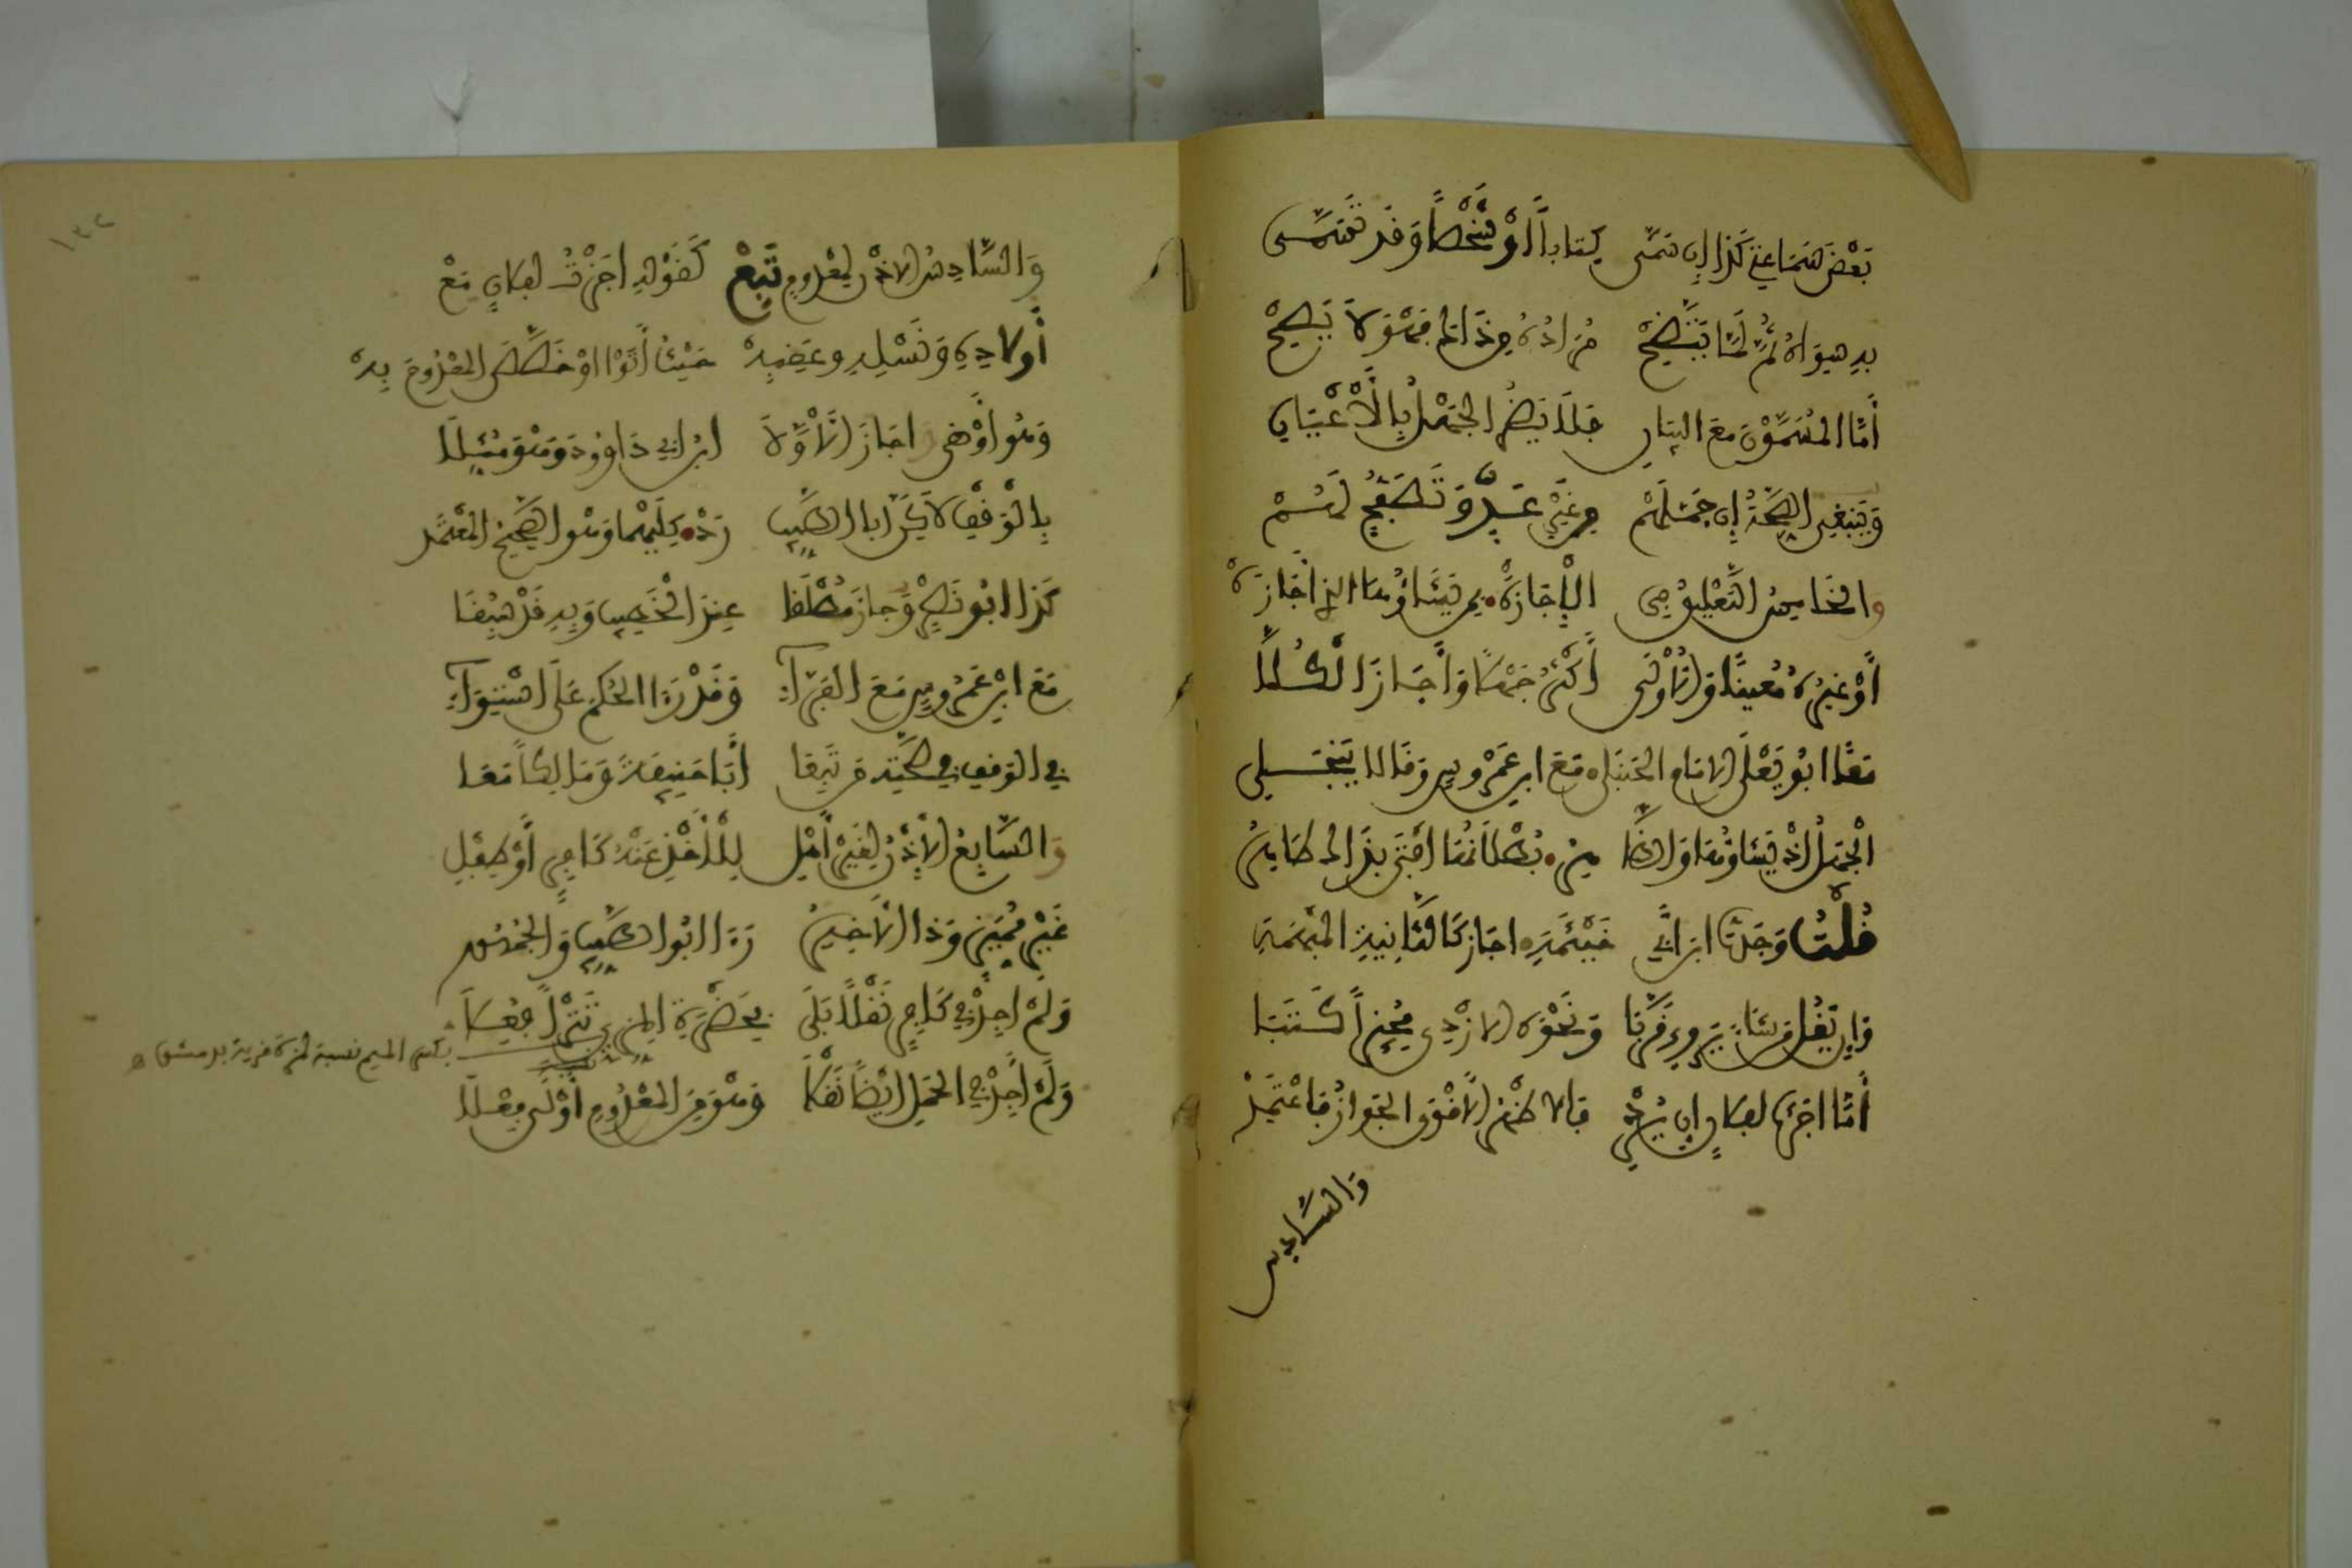 بَعْضَ سَمَاعِي كَذَا إِن سَمَّى كِتَاباً أَوْ شَخْصاً وَقَد تَسَمَّى
بِهِ سِوَاهُ ثُمَّ لَمَّا يَتَّضِحْ مُرَادُهُ مِن ذَاكَ فَهْوَ لاَ يَصِحْ
أَمَّا المُسَمَّوْنَ مَعَ البَيَانِ فَلاَ يَضُرُّ الجَهْلُ بِالْأَعْيَانِ
وَيَنبَغِي الصِّحَّةُ إِن جَمَلَهُمْ مِن غَيْرِ عَدٍّ وَتَصَفُّحٍ لَهُمْ
والخَامِسُ التَّعْلِيقُ فِي الْإِجَازَهْ بِمَن يَشَاؤُهَا الذِي أَجَازَهْ
أَوْ غَيْرُهُ مُعَيَّناً وَالْأُولَى أَكْثَرُ جَهْلاً وَأَجَازَ الْكُلاَّ
مَعاً ابُو يَعْلَى الامَامُ الحَنبَلِي مَعَ ابنِ عَمْرُوسٍ وَقَالاَ يَنجَلِي
الْجَهْلُ إذْ يَشَاؤُهَا وَالظَّاهِرُ بُطْلاَنُهَا أَفْتَى بِذَاكَ طَاهِرُ
قُلْتُ وَجَدتُّ ابنَ أَبِي خَيْثَمَةِ اجَازَ كَالثَّانِيَةِ المُبْهَمَةِ
وَإِن يَقُل مَن شَاءَ يَرْوِي قَرُبَا وَنَحْوَهُ الازْدِي مُجِيزاً كَتَبَا
أَمَّا اجَزْتُ لِفُلاَنٍ إِن يُرِدْ فَالاظْهَرُ الأَقْوَى الجَوَازُ فَاعْتَمِدْ
وَالسَّادِس
١٣٢
وَالسَّادِسُ الاذْنُ لِمَعْدُومٍ تَبَعْ كَقَوْلِهِ اجَزْتُ لِفُلاَنٍ مَعْ
أَولاَدِهِ وَنَسْلِهِ وعَقِبِهْ حَيْثُ أَتَوْا اوْ خَصَّصَ المَعْدُومَ بِهْ
وَهُوَ اوْهَى وَاجَازَ الْأَوَّلاَ ابنُ أَبِي دَاوُودَ وَهْوَ مُثِّلاَ
بِالْوَقْفِ لاَكِنَّ ابَا الطَّيِّبِ رَدْ كِلَيْهِمَا وَهُوَ الصَّحِيحُ المُعْتَمَد
كَذَا ابُو نَصْرٍ وَجَازَ مُطْلَقَا عِندَ الْخَطِيبِ وَبِهِ قَدْ سُبِقَا
مَعَ ابنِ عَمْرُوسٍ مَعَ الفَرَّاءِ وَقَدْ رَءَا الحُكْمَ عَلَى اسْتِوَاءِ
فِي الوَقْفِ فِي صِحَّتِهِ مَن تَبِعَا أَبَا حَنِيفَةَ وَمَالِكاً مَعَا
وَالسَّابِعُ الْإِذْنُ لِغَيْرِ أَهْلِ لِلْأَخْذِ عَنْهُ كَافِرٍ أَوْ طِفْلِ
غَيْرِ مُمَيِّزٍ وَذَا الْأَخِيرُ رَءَا ابُو الطَّيِّبِ وَالجُمْهُور
وَلَمْ اجِدْ فِي كَافِرٍ نَقْلاً بَلَى بِحَضْرَةِ المِزِّيِّ تَتْرَى فُعِلاَ
بكسر الميم نسبة لمزة قرية بدمشق ه
وَلَمْ أَجِدْ فِي الحَمْلِ ايْضاً نَقْلاَ وَهْوَ مِنَ المَعْدُومِ أَوْلَى فِعْلاَ